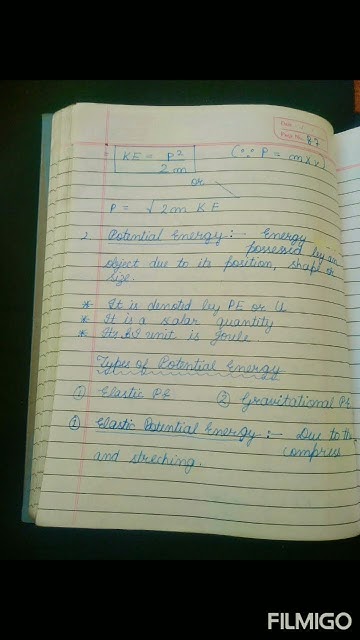 Date
Page No. 87
KE = P²/2m (∵ P = m x v)
or
P = √2m KE
2. Potential Energy :- Energy
possessed by an
object due to its position, shape or
size.
* It is denoted by PE or U
* It is a scalar quantity
* Its SI unit is joule.
Types of Potential Energy
① Elastic PE ② Gravitational PE
① Elastic Potential Energy :- Due to the
compress
and streching.
FILMIGO